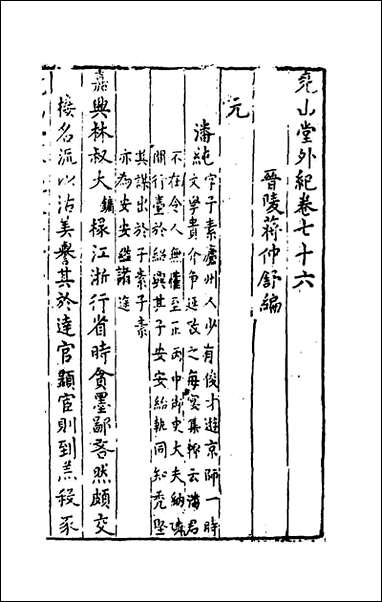 堯山堂外紀卷七十六
晉陵蔣仲舒編
元
潘純字子素廬州人少有俊才遊京師一時
文學貴介爭延致之每宴集輒云潘君
不在令人無懽至正丙申御史大夫納璘
開行臺於紹興其子安安紿執同知禿堅
其謀出於子素子素
亦為安安縊諸途
嘉興林叔大鏞掾江浙行省時貪墨鄙吝然頗交
接名流以沽美譽其於達官顯宦則刲羔殺豕